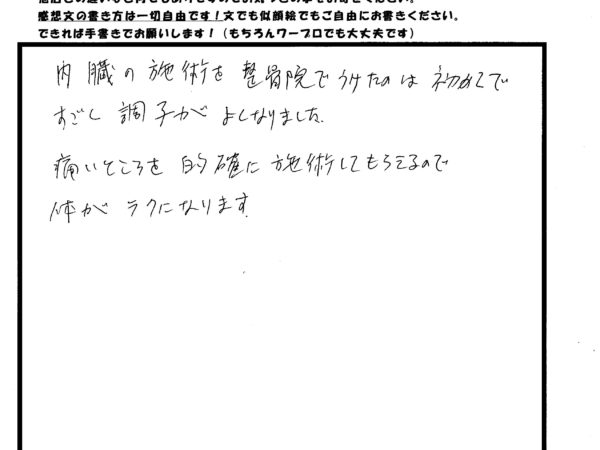 感想文の書き方は一切自由です！文でも似顔絵でもご自由にお書きください。
できれば手書きでお願いします！（もちろんワープロでも大丈夫です）
内臓の施術を整骨院でうけたのは初めてで
すごく調子がよくなりました。
痛いところを的確に施術してもらえるので
体がラクになります